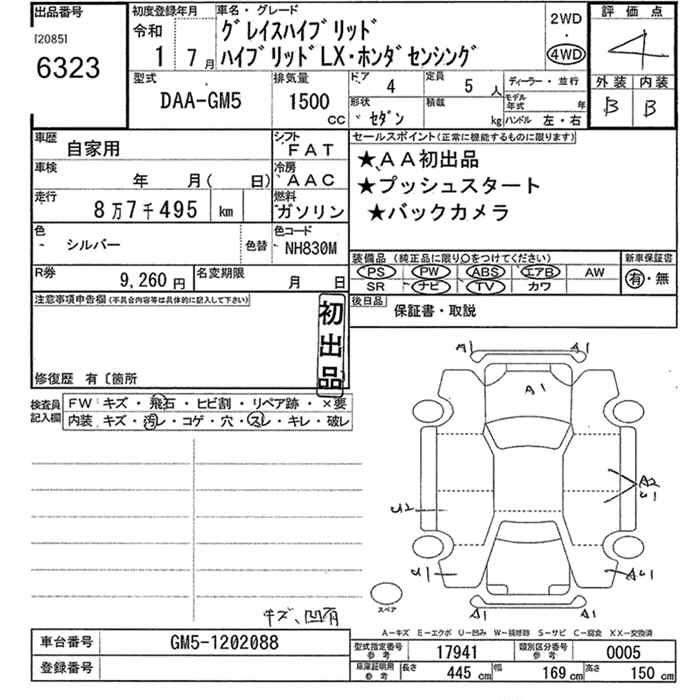 出品番号
[2085]
6323
初度登録年月
令和
1 7月
車名・グレード
グレイスハイブリッド
ハイブリッドLX・ホンダセンシング
2WD
・
4WD
評価点
4
外装 内装
B B
型式
DAA-GM5
排気量
1500
CC
ドア
4
定員
5 人
形状
セダン
積載
kg
ディーラー・並行
モデル年式 年
ハンドル 左・右
車歴
自家用
シフト
FAT
車検
年 月( 日)
冷房
AAC
走行
8万7千495 km
燃料
ガソリン
色
シルバー
色替
色コード
NH830M
R券
9,260円
名変期限
月 日
セールスポイント(正常に機能するものに限ります)
★AA初出品
★プッシュスタート
★バックカメラ
装備品(純正品に限り○をつけてください)
PS PW ABS エアB AW
SR ナビ TV カワ
新車保証書
有・無
後日品
保証書・取説
注意事項申告欄(不具合内容等は具体的に記入して下さい)
初出品
修復歴 有〔箇所
検査員記入欄
FW キズ・飛石・ヒビ割・リペア跡・×要
内装 キズ・汚レ・コゲ・穴・スレ・キレ・破レ
A1 A1
A1
A2
U1
U2
U1
AU1
A1 A1
スペア
キズ、凹有
A−キズ E−エクボ U−凹み W−補修跡 S−サビ C−腐食 XX−交換済
車台番号
GM5-1202088
登録番号
型式指定番号
参考
17941
類別区分番号
参考
0005
車庫証明用
参考
長さ
445 cm
幅
169 cm
高さ
150 cm